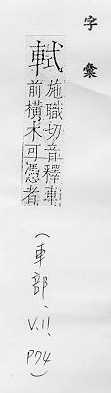 字彙
軾
施職切音釋車
前橫木可憑者
(車部、V.11、P74)